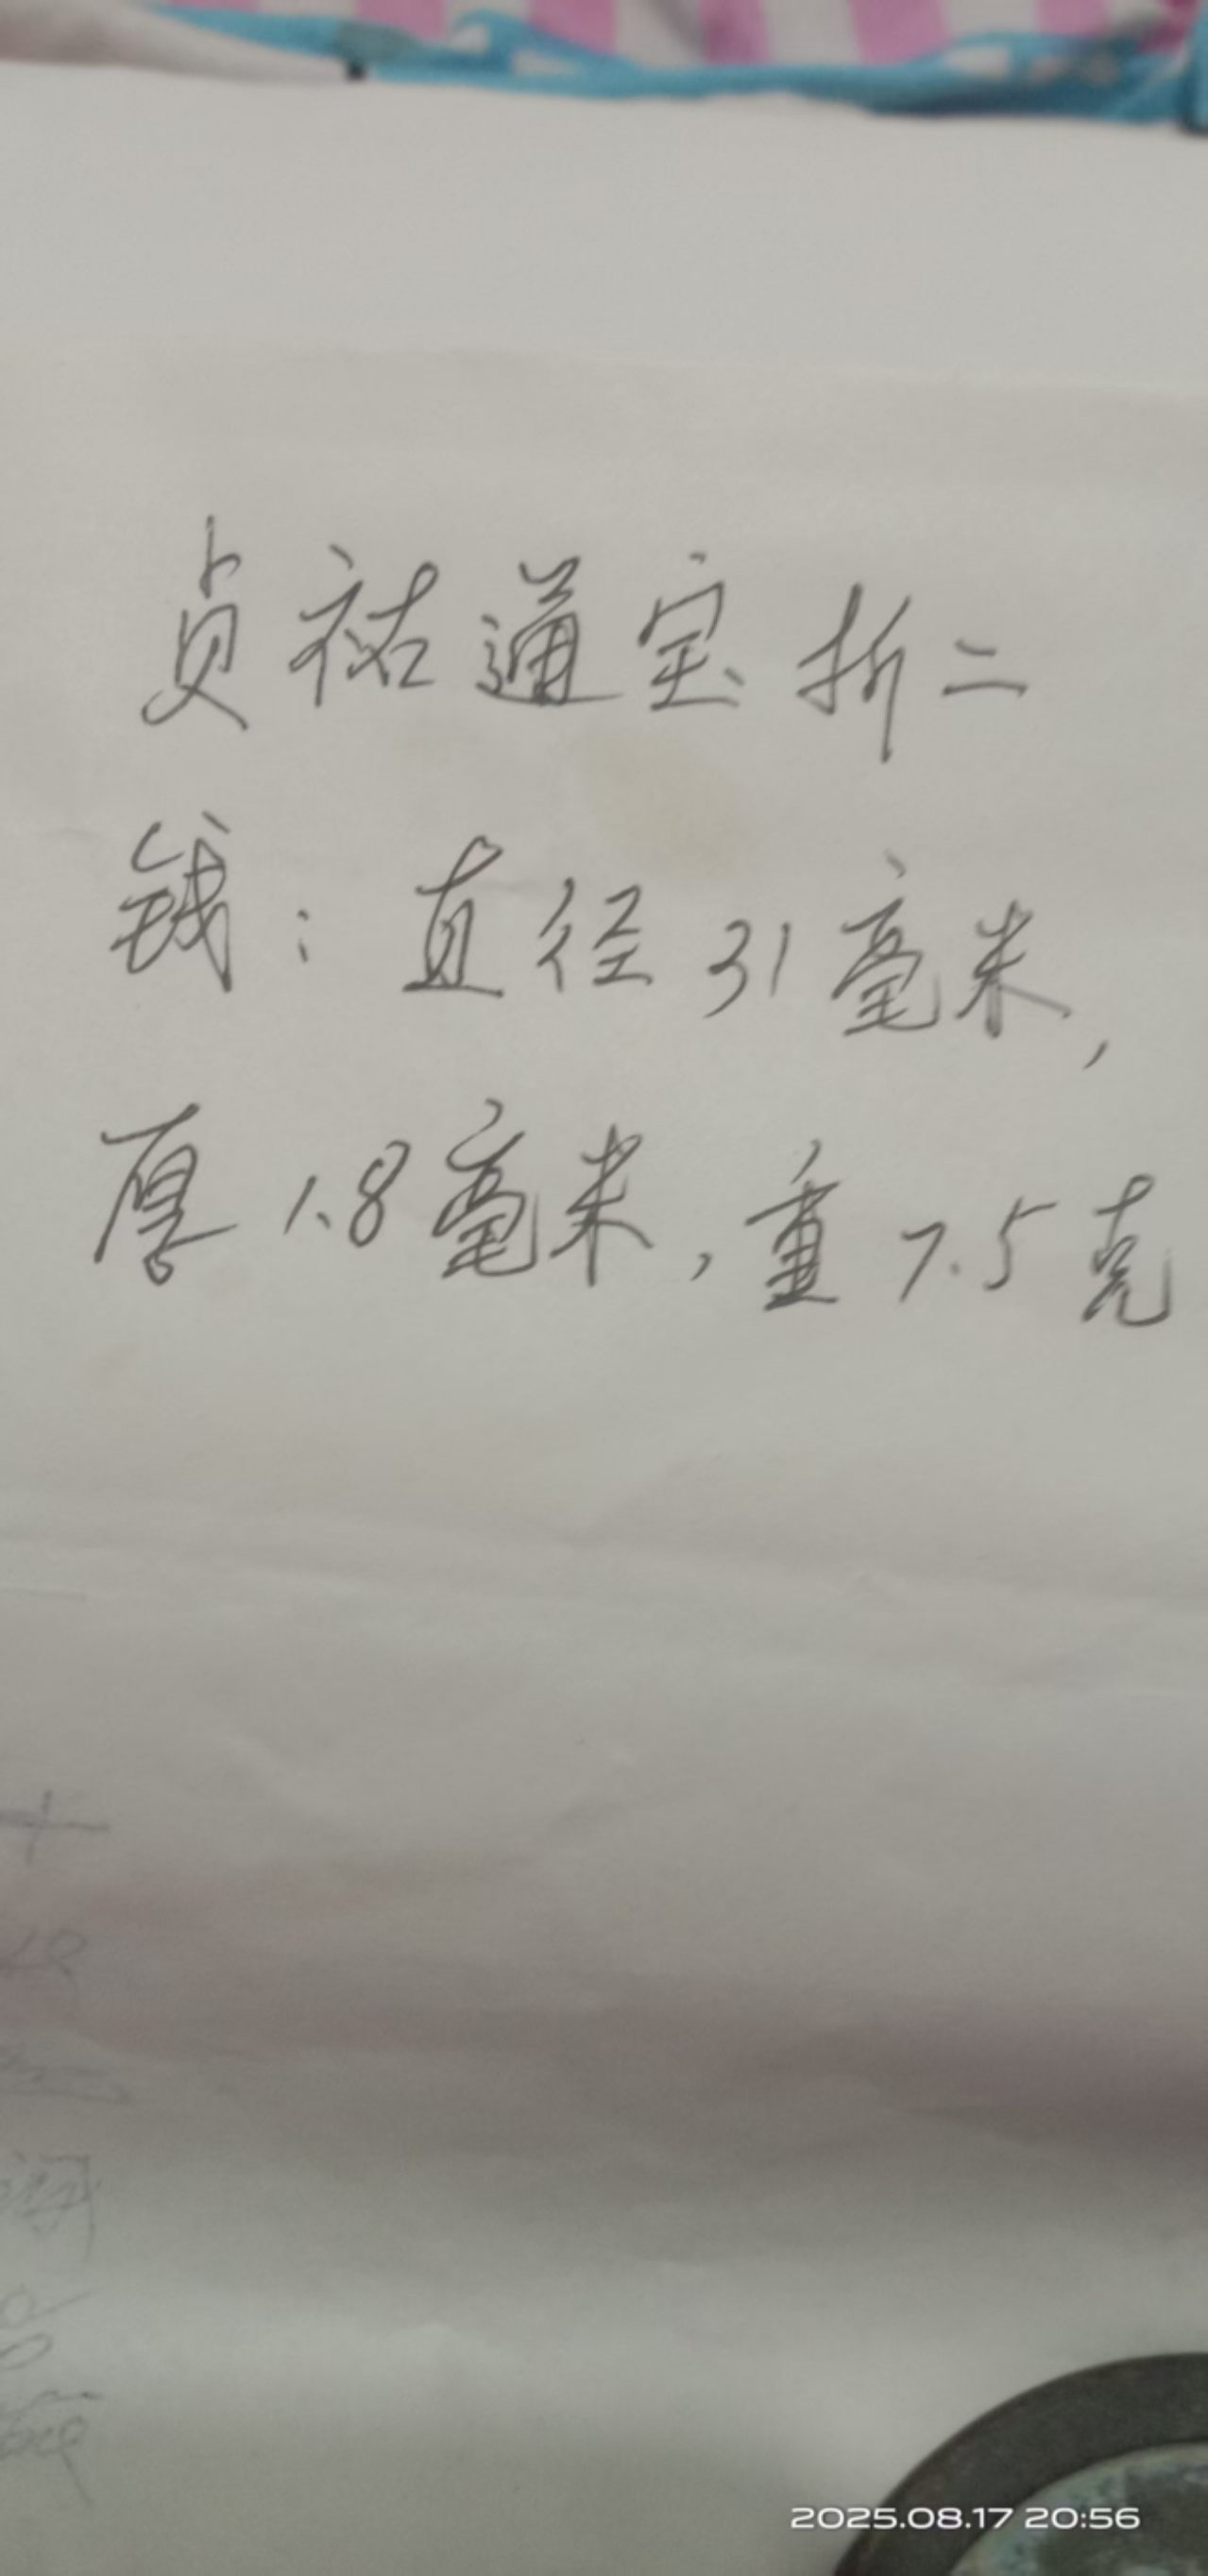 贞祐通宝折二
钱：直径31毫米，
厚1.8毫米，重7.5克
十
2025.08.17 20:56